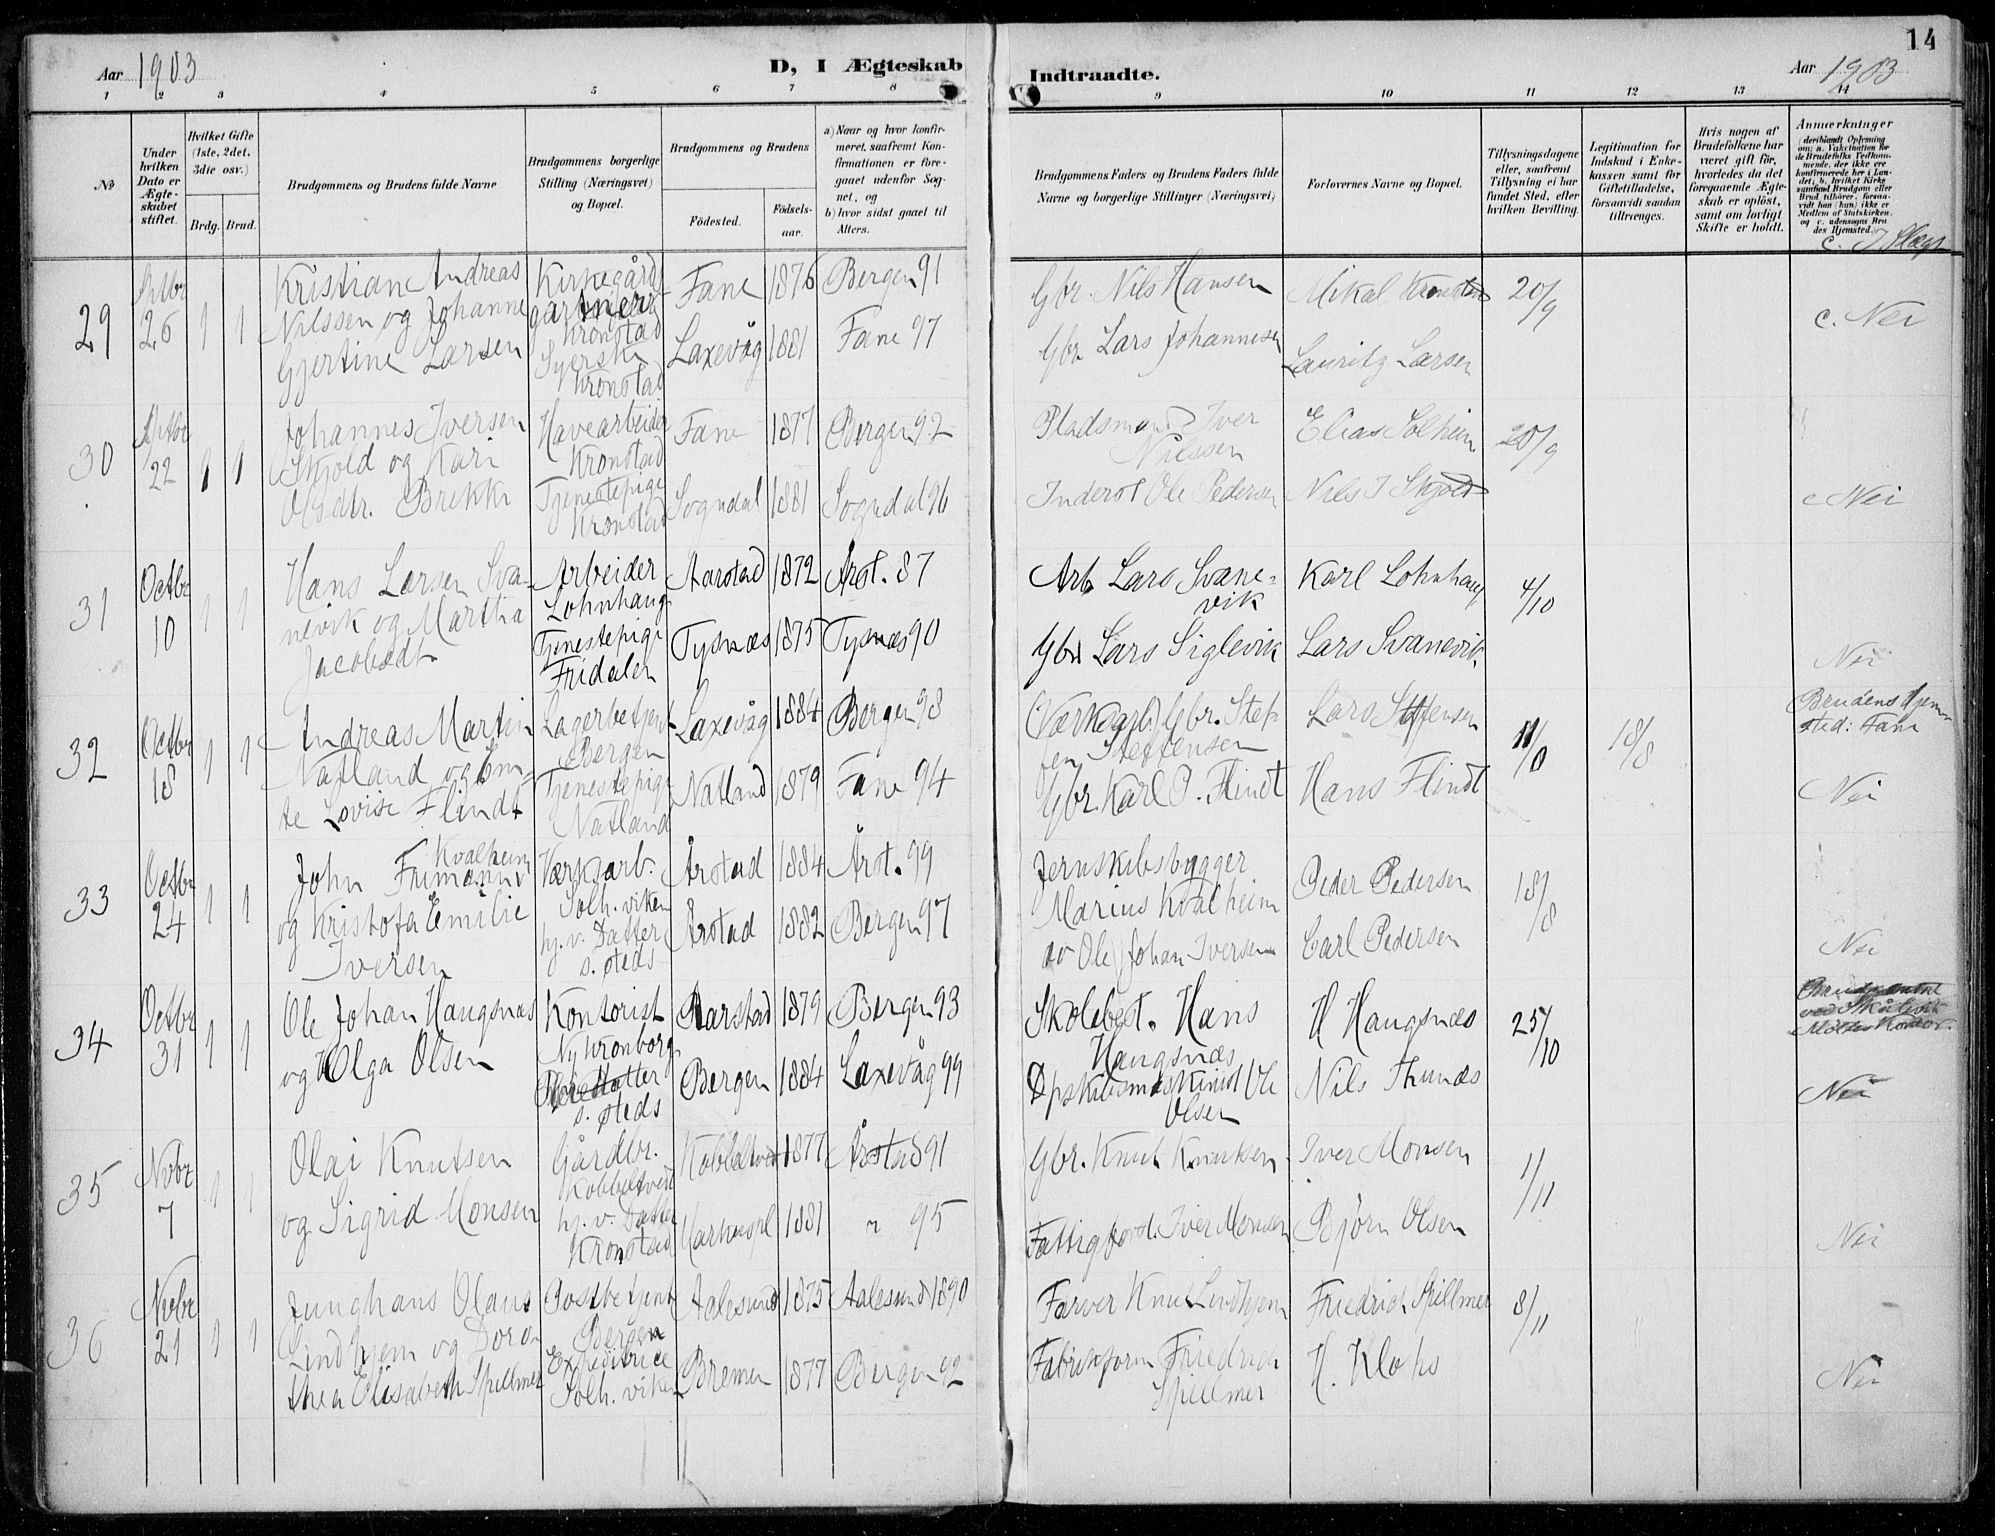 14
Aar 1903 D, I Ægteskab Indtraadte. Aar 1903
1 2 3 4 5 6 7 8 9 10 11 12 13 14
No
Under hvilken Dato er Ægteskabet stiftet.
Hvilket Gifte (1ste, 2det, 3die osv.)
Brdg. Brud.
Brudgommens og Brudens fulde Navne
Brudgommens borgerlige Stilling (Næringsvei) og Bopæl.
Brudgommens og Brudens
Fødested.
Fødselsaar.
a) Naar og hvor konfirmeret, saafremt Konfirmationen er foregaaet udenfor Sognet, og
b) hvor sidst gaaet til Alters.
Brudgommens Faders og Brudens Faders fulde Navne og borgerlige Stillinger (Næringsvei)
Forlovernes Navne og Bopæl.
Tillysningsdagene eller, saafremt Tillysning ei har fundet Sted, efter hvilken Bevilling.
Legitimation for Indskud i Enkekassen samt for Giftetilladelse, forsaavidt saadan tiltrænges.
Hvis nogen af Brudefolkene har været gift før, hvorledes da det foregaaende Ægteskab er opløst, samt om lovligt Skifte er holdt.
Anmærkninger
(deriblandt Oplysning om: a. Vaksination for de Brudefolks Vedkommende, der ikke ere konfirmerede her i Landet; b. hvilket Kirkesamfund Brudgom eller Brud tilhører, forsaavidt han (hun) ikke er Medlem af Statskirken, og c. udensogns Brudes Hjemsted.)
c. I Slægt
29 26 1 1
Kristian Andreas
Nilssen og Johanne
Gjertine Larsen
Kirkegårds
gartner
Kronstad
Syerske
Kronstad
Fane 1876 Bergen 91
Laxevåg 1881 Fane 97
Gbr. Nils Hansen
Gbr. Lars Johannesen
Mikal Kronstad
Lauritz Larsen
20/9
c. Nei
30 22 1 1
Johannes Iversen
Skjold og Kari
Olsdtr. Brekke
Havearbeider
Kronstad
Tjenestepige
Kronstad
Fane 1877 Bergen 92
Sogndal 1881 Sogndal 96
Pladsmand Iver
Nilssen
Inderst Ole Pedersen
Elias Solheim
Nils I Skjold
20/9
c Nei
31 Octbr 10 1 1
Hans Larsen Sva-
nevik og Martha
Jacobsdt
Arbeider
Lohnhaug
Tjenestepige
Fridalen
Aarstad 1872 Årst. 87
Tysnæs 1875 Tysnæs 90
Arb Lars Svane-
vik
Gbr Lars Siglevik
Karl Lohnhaug
Lars Svanevik
4/10
Nei
32 Octbr 18 1 1
Andreas Martin
Natland og Em-
te Lovise Flindt
Lagerbetjent
Bergen
Tjenestepige
Natland
Laxevåg 1884 Bergen 98
Natland 1879 Fane 94
(Værksarb.) Gbr. Stef-
fen Steffensen
Gbr. Karl P. Flindt
Lars Steffensen
Hans Flindt
18/8
Brudens Hjem-
sted: Fane
Nei
33 Octbr 24 1 1
John Frimann Kvalheim
og Kristofa Emilie
Iversen
Værksarb.
Solh. viken
hj. v. Datter
s. steds
Årstad 1884 Årst. 99
Årstad 1882 Bergen 97
Jernskibsbygger
Marius Kvalheim
Ole Johan Iversen
Peder Pedersen
Carl Pedersen
18/8
Nei
34 Octbr 31 1 1
Ole Johan Haugsnæs
og Olga Olsen
Kontorist
Ny Kronborg
Datter
s. steds
Aarstad 1879 Bergen 93
Bergen 1884 Laxevåg 99
Skolebest. Hans
Haugsnæs
Dpskibsmaskinist Ole
Olsen
H Haugsnæs
Nils Thunæs
25/10
Nei
35 Nvbr 7 1 1
Olai Knutsen
og Sigrid Monsen
Gårdbr.
Kobbeltvedt
hj. v. Datter
Kronstad
Kobbeltvedt 1877 Årstad 91
1881 " 95
Gbr. Knut Knutsen
Fattigford. Iver Monsen
Iver Monsen
Bjørn Olsen
1/11
Nei
36 Nvbr 21 1 1
Junghans Olaus
Lindhjem og Doro-
thea Elisabeth Spillmer
Postbetjent
Bergen
Expeditrice
Solh. viken
Aalesund 1875 Aalesund 1890
Bremen 1877 Bergen 92
Farver Knut Lindhjem
Fabrikform Friedrich
Spillmer
Friedrich Spillmer
H. Klohs
8/11
Nei